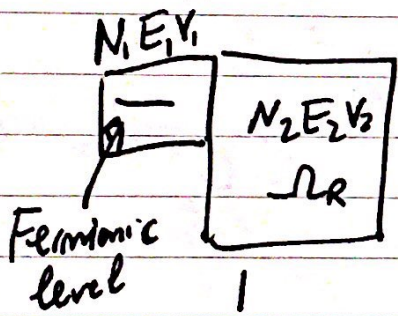 N₁E₁V₁
N₂E₂V₂
Ω_R
Fermionic
level